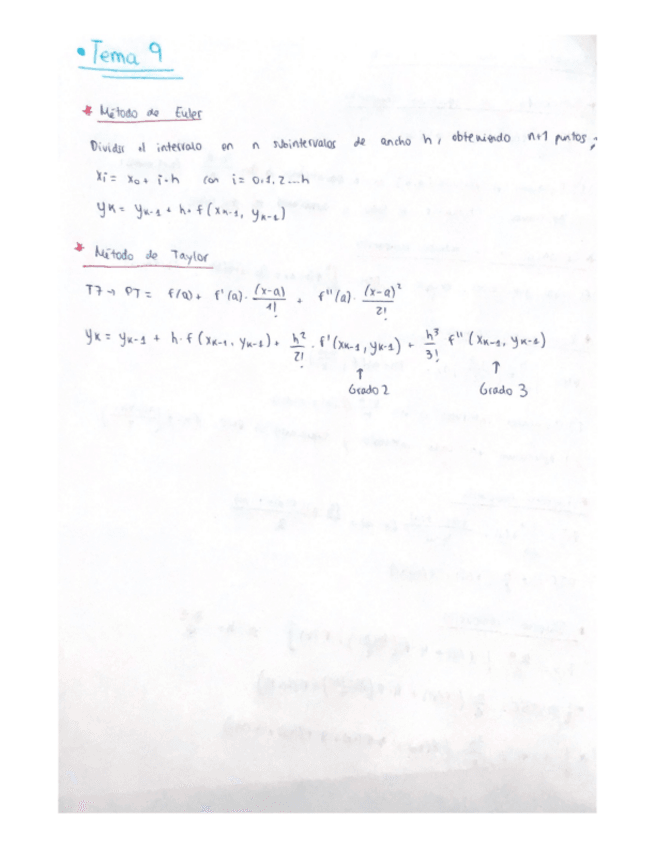 • Tema 9
* Método de Euler
Dividir el intervalo en n subintervalos de ancho h, obteniendo n+1 puntos;
xi = x₀ + i·h con i = 0,1,2...h
yк = yк-1 + h·f(xк-1, yк-1)
* Método de Taylor
T7 → PT = f(a) + f'(a)·(x-a)/1! + f''(a)·(x-a)²/2!
yк = yк-1 + h·f(xк-1, yк-1) + h²/2!·f'(xк-1, yк-1) + h³/3! f''(xк-1, yк-1)
↑ ↑
Grado 2 Grado 3